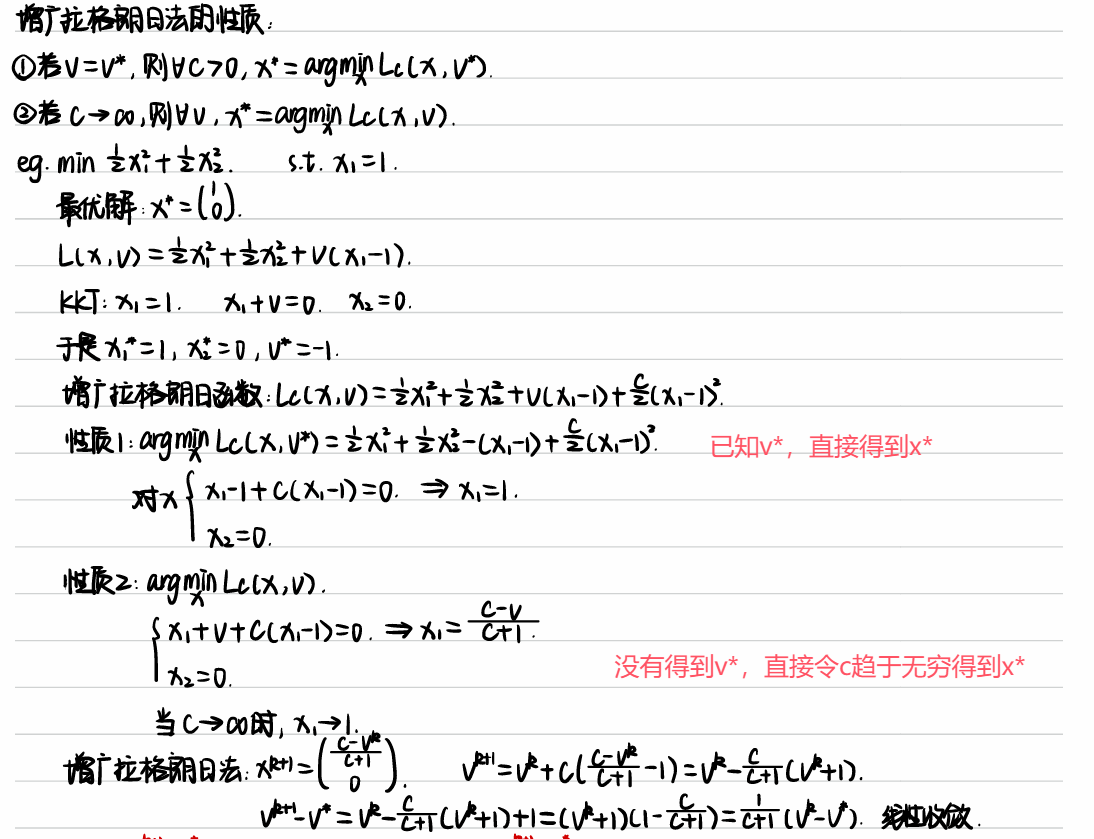 增广拉格朗日法的性质:
①若v=v*,则∀c>0, x*=argmin_x Lc(x,v*).
②若 c→∞,则∀v, x*=argmin_x Lc(x,v).
eg. min ½x₁²+½x₂². s.t. x₁=1.
最优解: x*=(1 0).
L(x,v)=½x₁²+½x₂²+v(x₁-1).
KKT: x₁=1. x₁+v=0. x₂=0.
于是 x₁*=1, x₂*=0, v*=-1.
增广拉格朗日函数: Lc(x,v)=½x₁²+½x₂²+v(x₁-1)+c/2(x₁-1)².
性质1: argmin_x Lc(x,v*)=½x₁²+½x₂²-(x₁-1)+c/2(x₁-1)². 已知v*，直接得到x*
对x { x₁-1+c(x₁-1)=0. ⇒ x₁=1.
x₂=0.
性质2: argmin_x Lc(x,v).
{ x₁+v+c(x₁-1)=0. ⇒ x₁=(c-v)/(c+1).
x₂=0. 没有得到v*，直接令c趋于无穷得到x*
当c→∞时, x₁→1.
增广拉格朗日法: x^{k+1}=((c-v^k)/(c+1) 0). v^{k+1}=v^k+c((c-v^k)/(c+1)-1)=v^k-c/(c+1)(v^k+1).
v^{k+1}-v*=v^k-c/(c+1)(v^k+1)+1=(v^k+1)(1-c/(c+1))=1/(c+1)(v^k-v*). 线性收敛.